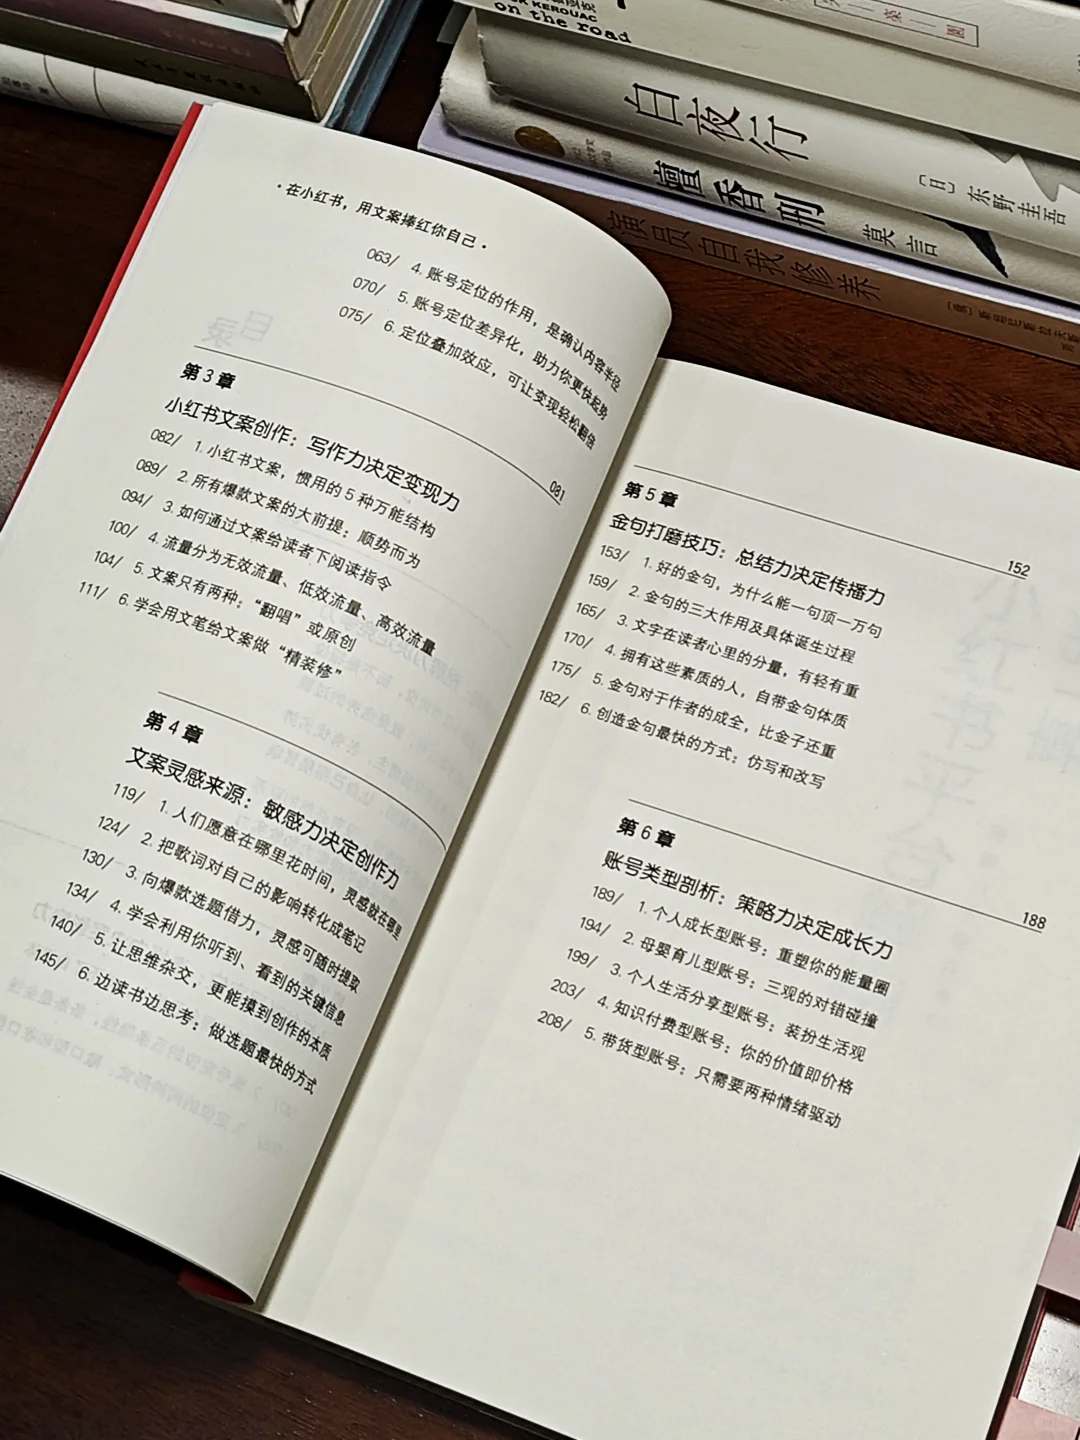 KEROUAC
on the road
白夜行
〔日〕东野圭吾
檀香刑
莫言
演员自我修养
·在小红书，用文案捧红你自己·
063/ 4.账号定位的作用，是确认内容半径
070/ 5.账号定位差异化，助力你更快起势
075/ 6.定位叠加效应，可让变现轻松翻倍
目录
第3章
小红书文案创作：写作力决定变现力
081
082/ 1.小红书文案，惯用的5种万能结构
089/ 2.所有爆款文案的大前提：顺势而为
094/ 3.如何通过文案给读者下阅读指令
100/ 4.流量分为无效流量、低效流量、高效流量
104/ 5.文案只有两种：“翻唱”或原创
111/ 6.学会用文笔给文案做“精装修”
第4章
文案灵感来源：敏感力决定创作力
119/ 1.人们愿意在哪里花时间，灵感就在哪里
124/ 2.把歌词对自己的影响转化成笔记
130/ 3.向爆款选题借力，灵感可随时提取
134/ 4.学会利用你听到、看到的关键信息
140/ 5.让思维杂交，更能摸到创作的本质
145/ 6.边读书边思考：做选题最快的方式
第5章
金句打磨技巧：总结力决定传播力
152
153/ 1.好的金句，为什么能一句顶一万句
159/ 2.金句的三大作用及具体诞生过程
165/ 3.文字在读者心里的分量，有轻有重
170/ 4.拥有这些素质的人，自带金句体质
175/ 5.金句对于作者的成全，比金子还重
182/ 6.创造金句最快的方式：仿写和改写
第6章
账号类型剖析：策略力决定成长力
188
189/ 1.个人成长型账号：重塑你的能量圈
194/ 2.母婴育儿型账号：三观的对错碰撞
199/ 3.个人生活分享型账号：装扮生活观
203/ 4.知识付费型账号：你的价值即价格
208/ 5.带货型账号：只需要两种情绪驱动